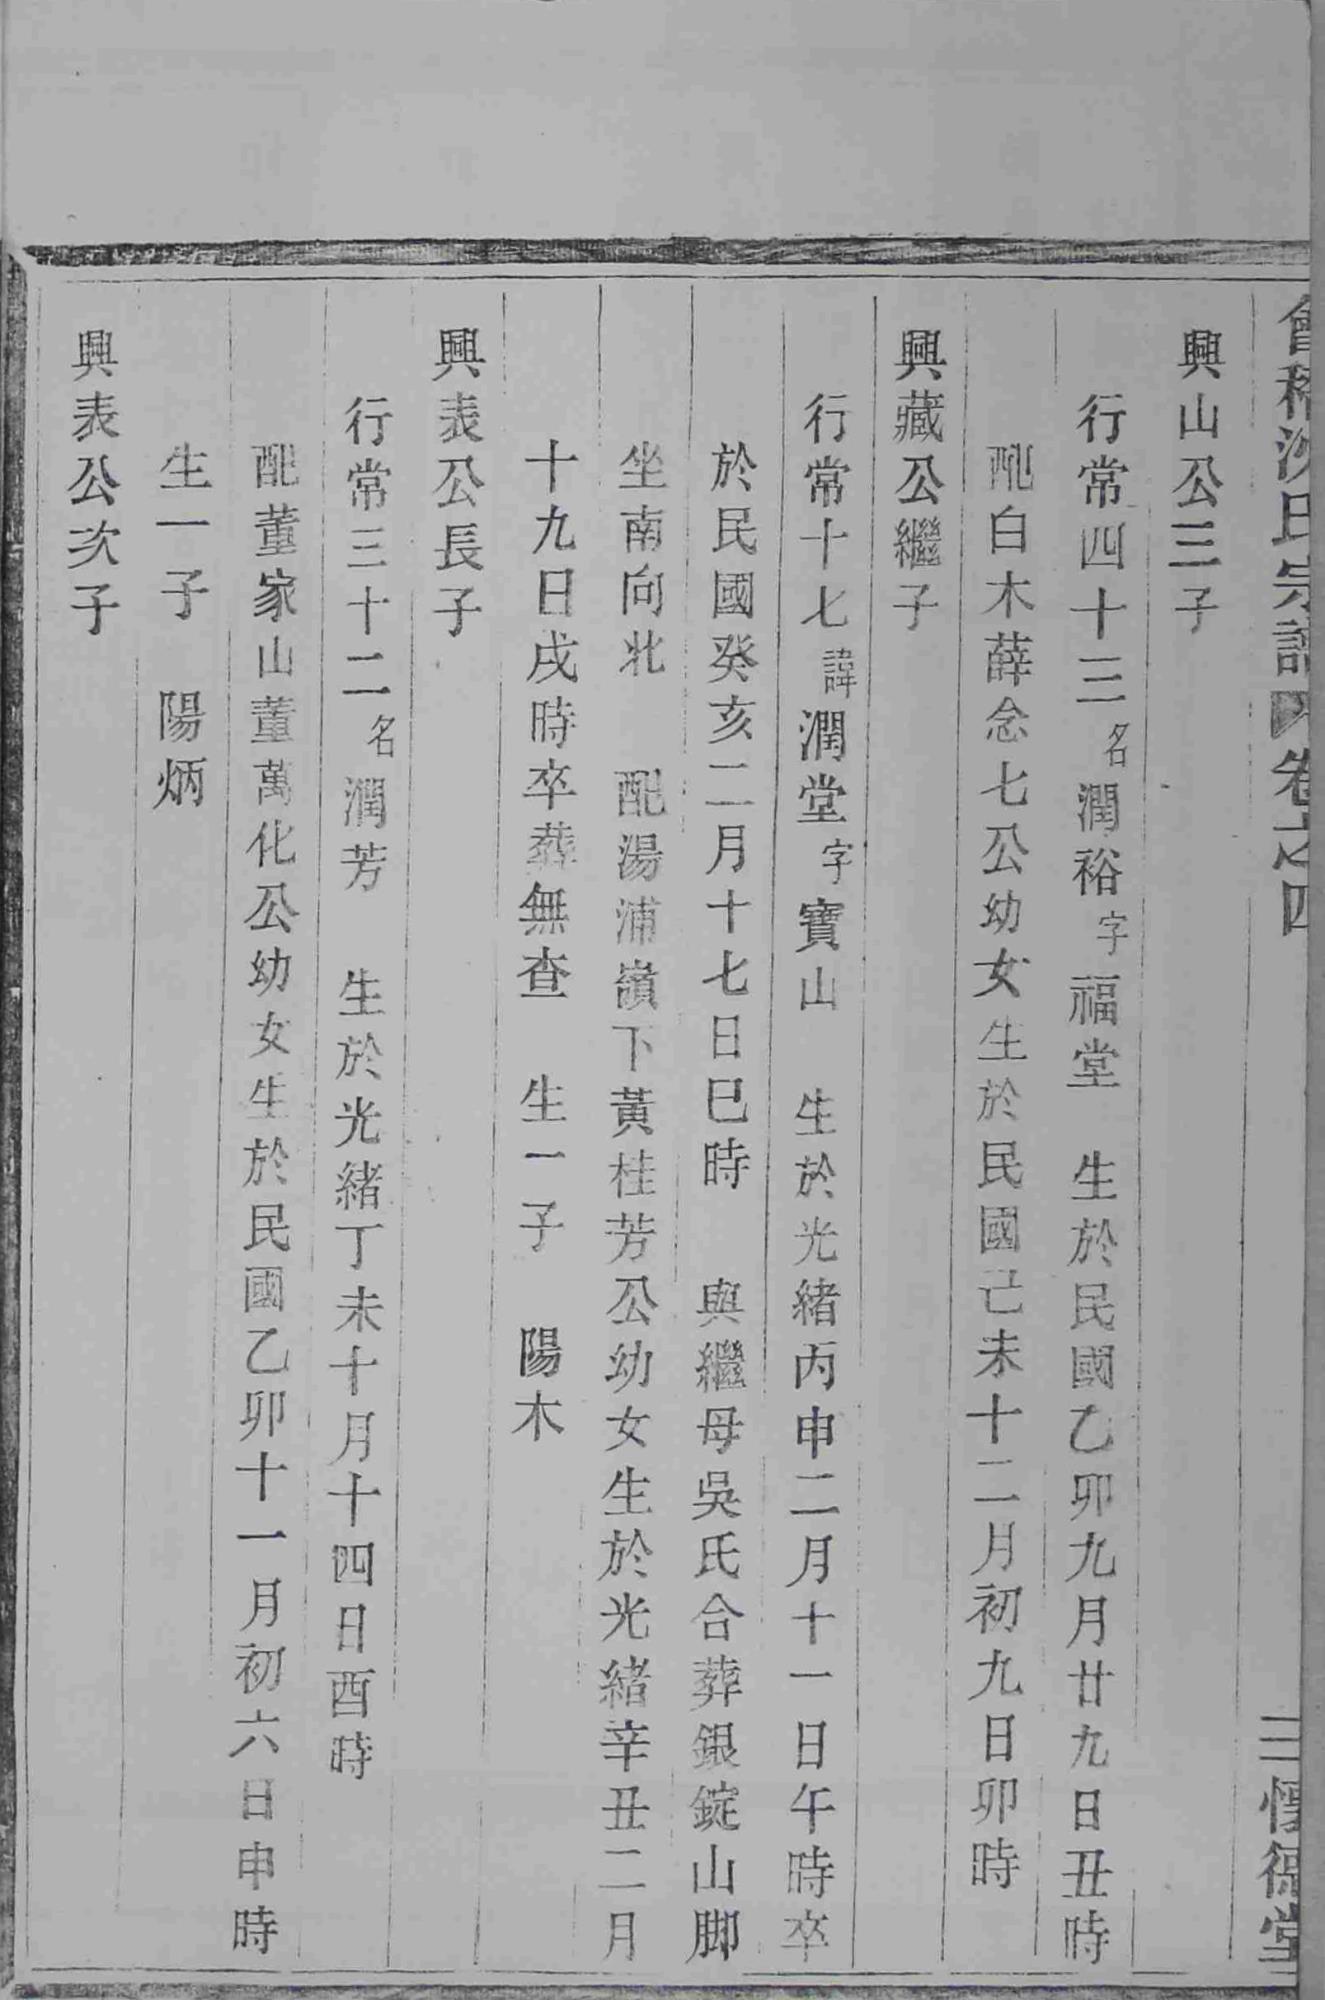 會稽沈氏宗譜 卷之四 三 德堂
興山公三子
行常四十三名潤裕字福堂 生於民國乙卯九月廿九日丑時
配白木薛念七公幼女生於民國己未十二月初九日卯時
興藏公繼子
行常十七諱潤堂字寶山 生於光緒丙申二月十一日午時卒
於民國癸亥二月十七日巳時 與繼母吳氏合葬銀錠山脚
坐南向北 配湯浦嶺下黃桂芳公幼女生於光緒辛丑二月
十九日戌時卒葬無查 生一子 陽木
興表公長子
行常三十二名潤芳 生於光緒丁未十月十四日酉時
配董家山董萬化公幼女生於民國乙卯十一月初六日申時
生一子 陽炳
興表公次子